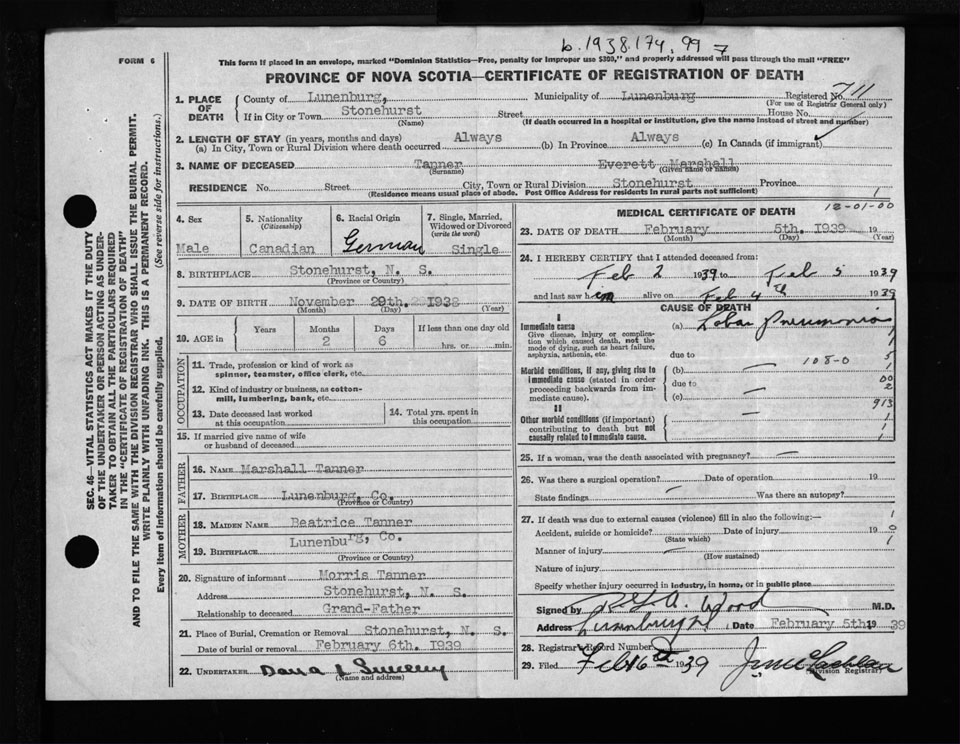 b.1938.174.997
FORM 6
This form if placed in an envelope, marked "Dominion Statistics—Free, penalty for improper use $300," and properly addressed will pass through the mail "FREE"
PROVINCE OF NOVA SCOTIA—CERTIFICATE OF REGISTRATION OF DEATH
SEC. 46—VITAL STATISTICS ACT MAKES IT THE DUTY
OF THE UNDERTAKER OR PERSON ACTING AS UNDER-
TAKER TO OBTAIN ALL THE PARTICULARS REQUIRED
IN THE "CERTIFICATE OF REGISTRATION OF DEATH"
AND TO FILE THE SAME WITH THE DIVISION REGISTRAR WHO SHALL ISSUE THE BURIAL PERMIT.
WRITE PLAINLY WITH UNFADING INK. THIS IS A PERMANENT RECORD.
Every item of information should be carefully supplied. (See reverse side for instructions.)
1. PLACE OF DEATH County of Lunenburg, Municipality of Lunenburg Registered No. 711
(For use of Registrar General only)
If in City or Town Stonehurst Street House No.
(Name) (If death occurred in a hospital or institution, give the name instead of street and number)
2. LENGTH OF STAY (in years, months and days)
(a) In City, Town or Rural Division where death occurred Always (b) In Province Always (c) In Canada (if immigrant)
3. NAME OF DECEASED Tanner Everett Marshall
(Surname) (Given name or names)
RESIDENCE No. Street City, Town or Rural Division Stonehurst Province
(Residence means usual place of abode. Post Office Address for residents in rural parts not sufficient) 1
4. Sex Male
5. Nationality (Citizenship) Canadian
6. Racial Origin German
7. Single, Married, Widowed or Divorced (write the word) Single
8. BIRTHPLACE Stonehurst, N. S.
(Province or Country)
9. DATE OF BIRTH November 29th. 1938
(Month) (Day) (Year)
10. AGE in Years Months Days If less than one day old
2 6 hrs. or min.
OCCUPATION
11. Trade, profession or kind of work as spinner, teamster, office clerk, etc.
12. Kind of industry or business, as cotton-mill, lumbering, bank, etc.
13. Date deceased last worked at this occupation
14. Total yrs. spent in this occupation
15. If married give name of wife or husband of deceased
FATHER
16. NAME Marshall Tanner
17. BIRTHPLACE Lunenburg, Co.
(Province or Country)
MOTHER
18. MAIDEN NAME Beatrice Tanner
19. BIRTHPLACE Lunenburg, Co.
(Province or Country)
20. Signature of informant Morris Tanner
Address Stonehurst, N. S.
Relationship to deceased Grand-Father
21. Place of Burial, Cremation or Removal Stonehurst, N. S.
Date of burial or removal February 6th. 1939
22. UNDERTAKER Dana L Sweeny
(Name and address)
12-01-00
MEDICAL CERTIFICATE OF DEATH
23. DATE OF DEATH February 5th. 1939 19
(Month) (Day) (Year)
24. I HEREBY CERTIFY that I attended deceased from:
Feb 2 1939 to Feb 5 1939
and last saw him alive on Feb 4th 1939
CAUSE OF DEATH
I
Immediate cause (a) Lobar Pneumonia
Give disease, injury or complica-
tion which caused death, not the
mode of dying, such as heart failure,
asphyxia, asthenia, etc. due to
Morbid conditions, if any, giving rise to
immediate cause (stated in order
proceeding backwards from im-
mediate cause). (b) 108-0
due to
(c)
913
II
Other morbid conditions (if important)
contributing to death but not
causally related to immediate cause.
25. If a woman, was the death associated with pregnancy?
26. Was there a surgical operation? Date of operation 19
State findings Was there an autopsy?
27. If death was due to external causes (violence) fill in also the following:—
Accident, suicide or homicide? Date of injury 19
(State which)
Manner of injury
(How sustained)
Nature of injury
Specify whether injury occurred in industry, in home, or in public place
Signed by R G A Wood M.D.
Address Lunenburg Date February 5th 1939
28. Registrar's Record Number
29. Filed Feb 16th 1939
(Division Registrar)